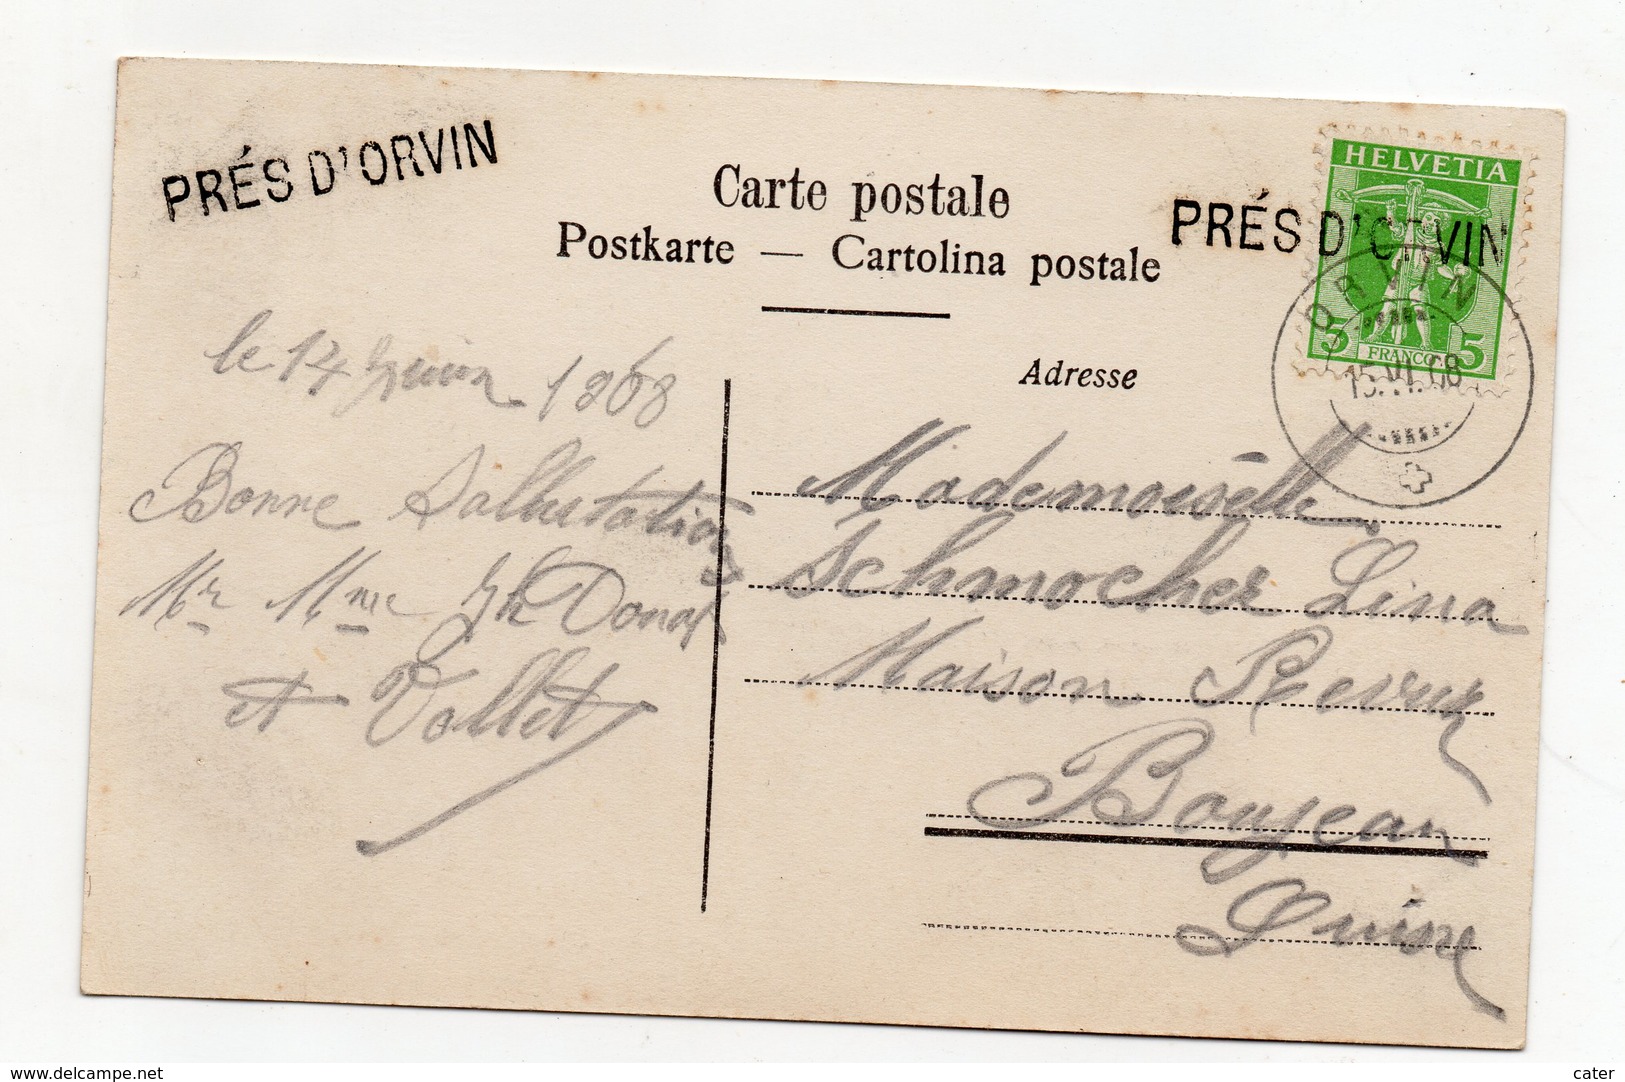 PRÉS D'ORVIN
Carte postale
Postkarte — Cartolina postale
PRÉS D'ORVIN
HELVETIA
5 FRANCO 5
ORVIN
15.VI.08
Adresse
le 14 Juin 1908
Bonne Salhutation
Mr Mme Donat
et Vallet
Mademoiselle
Schmocher Lina
Maison
Boujean
Suisse
delcampe.net
cater